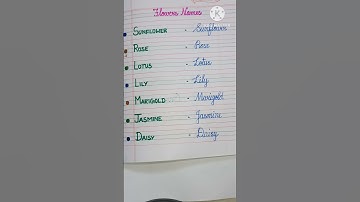 Flowers Names
SUNFLOWER - Sunflower
ROSE - Rose
LOTUS - Lotus
LILY - Lily
MARIGOLD - Marigold
JASMINE - Jasmine
DAISY - Daisy